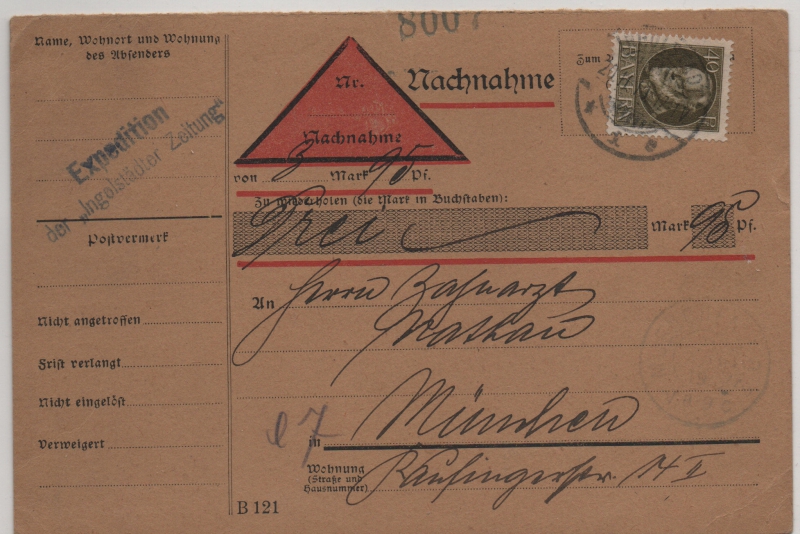 8007
Name, Wohnort und Wohnung
des Absenders
Expedition
der „Ingolstädter Zeitung“
Postvermerk
Nicht angetroffen
Frist verlangt
Nicht eingelöst
Verweigert
Nr.
Nachnahme
Nachnahme
Zum
40
BAYERN
von 3 Mark 95 Pf.
Zu wiederholen (die Mark in Buchstaben):
Drei Mark 95 Pf.
An Herrn Zahnarzt
München
in
Wohnung
(Straße und
Hausnummer)
Kaufingerstr. 14 II
B 121